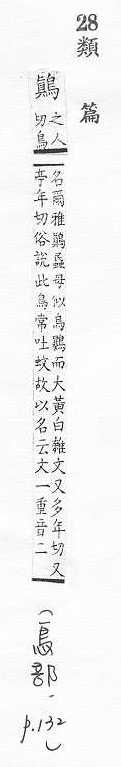 28 類篇
鷏
之人
切鳥
名爾雅鷏蟁母似烏鸔而大黃白雜文又多年切又
亭年切俗說此鳥常吐蚊故以名云文一重音二
(鳥部, p.132)